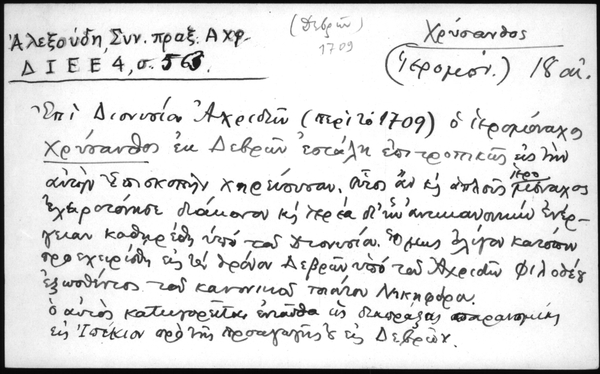 Ἀλεξούδη, Συν. πραξ. Αχρ.
ΔΙΕΕ 4, σ. 563.
(Δεβρῶν)
1709
Χρύσανθος
(Ἱερομόν.) 18 αἰ.
Ἐπὶ Διονυσίου Ἀχριδῶν (περὶ τὸ 1709) ὁ ἱερομόναχος
Χρύσανθος ἐκ Δεβρῶν ἐστάλη ἐπιτροπικῶς εἰς τὴν
αὐτὴν Ἐπισκοπὴν χηρεύουσαν. Οὗτος ἂν κ̀ ἁπλοῦς ἱερομόναχος
ἐχειροτόνησε διάκονον κ̀ ἱερέα δι' ἣν ἀντικανονικὴν ἐνέρ-
γειαν καθηρέθη ὑπὸ τοῦ Διονυσίου. Ὅμως ὀλίγον κατόπιν
προεχειρίσθη εἰς τὸν θρόνον Δεβρῶν ὑπὸ τοῦ Ἀχριδῶν Φιλοθέου
ἐξωσθέντος τοῦ κανονικοῦ τούτου Νικηφόρου.
ὁ αὐτὸς κατηγορεῖται ἐνταῦθα ὡς διαπράξας παρανομίας
εἰς Ἰπέκιον πρὸ τῆς προαγωγῆς εἰς Δεβρῶν.